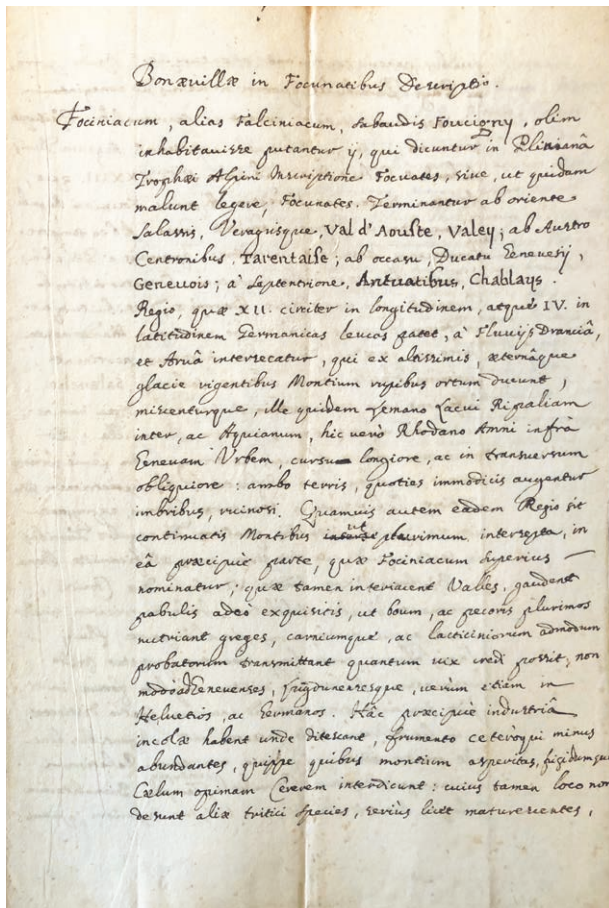 Bonævillæ in Focunatibus Descriptio.
Fociniacum, alias Falciniacum, Sabaudis Foucigny, olim
inhabitavisse putantur ij, qui dicuntur in Plinianâ
Trophæi Alpini Inscriptione Focuates, sive, ut quidam
malunt legere, Focunates. Terminantur ab oriente
Salassis, Veragrisque, Val d'Aouste, Valey; ab Austro
Centronibus, Tarentaise; ab occasu, Ducatu Genevesij,
Genevois; à Septentrione, Antuatibus, Chablays.
Regio, quæ XII. circiter in longitudinem, atque IV. in
latitudinem Germanicas leucas patet, à Fluvijs Dranciâ,
et Arvâ intersecatur, qui ex altissimis, æternâque
glacie rigentibus Montium rupibus ortum ducunt,
miscenturque, ille quidem Lemano Lacui Ripaliam
inter, ac Aquianum, hic verò Rhodano Amni infrà
Genevam Urbem, cursu longiore, ac in transversum
obliquiore: ambo terris, quoties immodicis augentur
imbribus, vicinosi. Quamvis autem eadem Regio sit
continuatis Montibus ut plurimum intersepta, in
eâ præcipuè parte, quæ Fociniacum Superius
nominatur; quæ tamen interiacent Valles, gaudent
pabulis adeò exquisitis, ut boum, ac pecoris plurimos
nutriant greges, carniumque, ac lacticiniorum admodum
probatorum transmittant quantum vix credi possit, non
modò ad Genevenses, Lugdunensesque, verùm etiam in
Helvetios, ac Germanos. Hâc præcipuè industriâ
incolæ habent unde ditescant, frumento ceteroqui minus
abundantes, quippe quibus montium asperitas, frigidumque
Cælum opimam Cererem interdicunt: cuius tamen loco non
desunt aliæ tritici species, seriùs licet maturescentes,